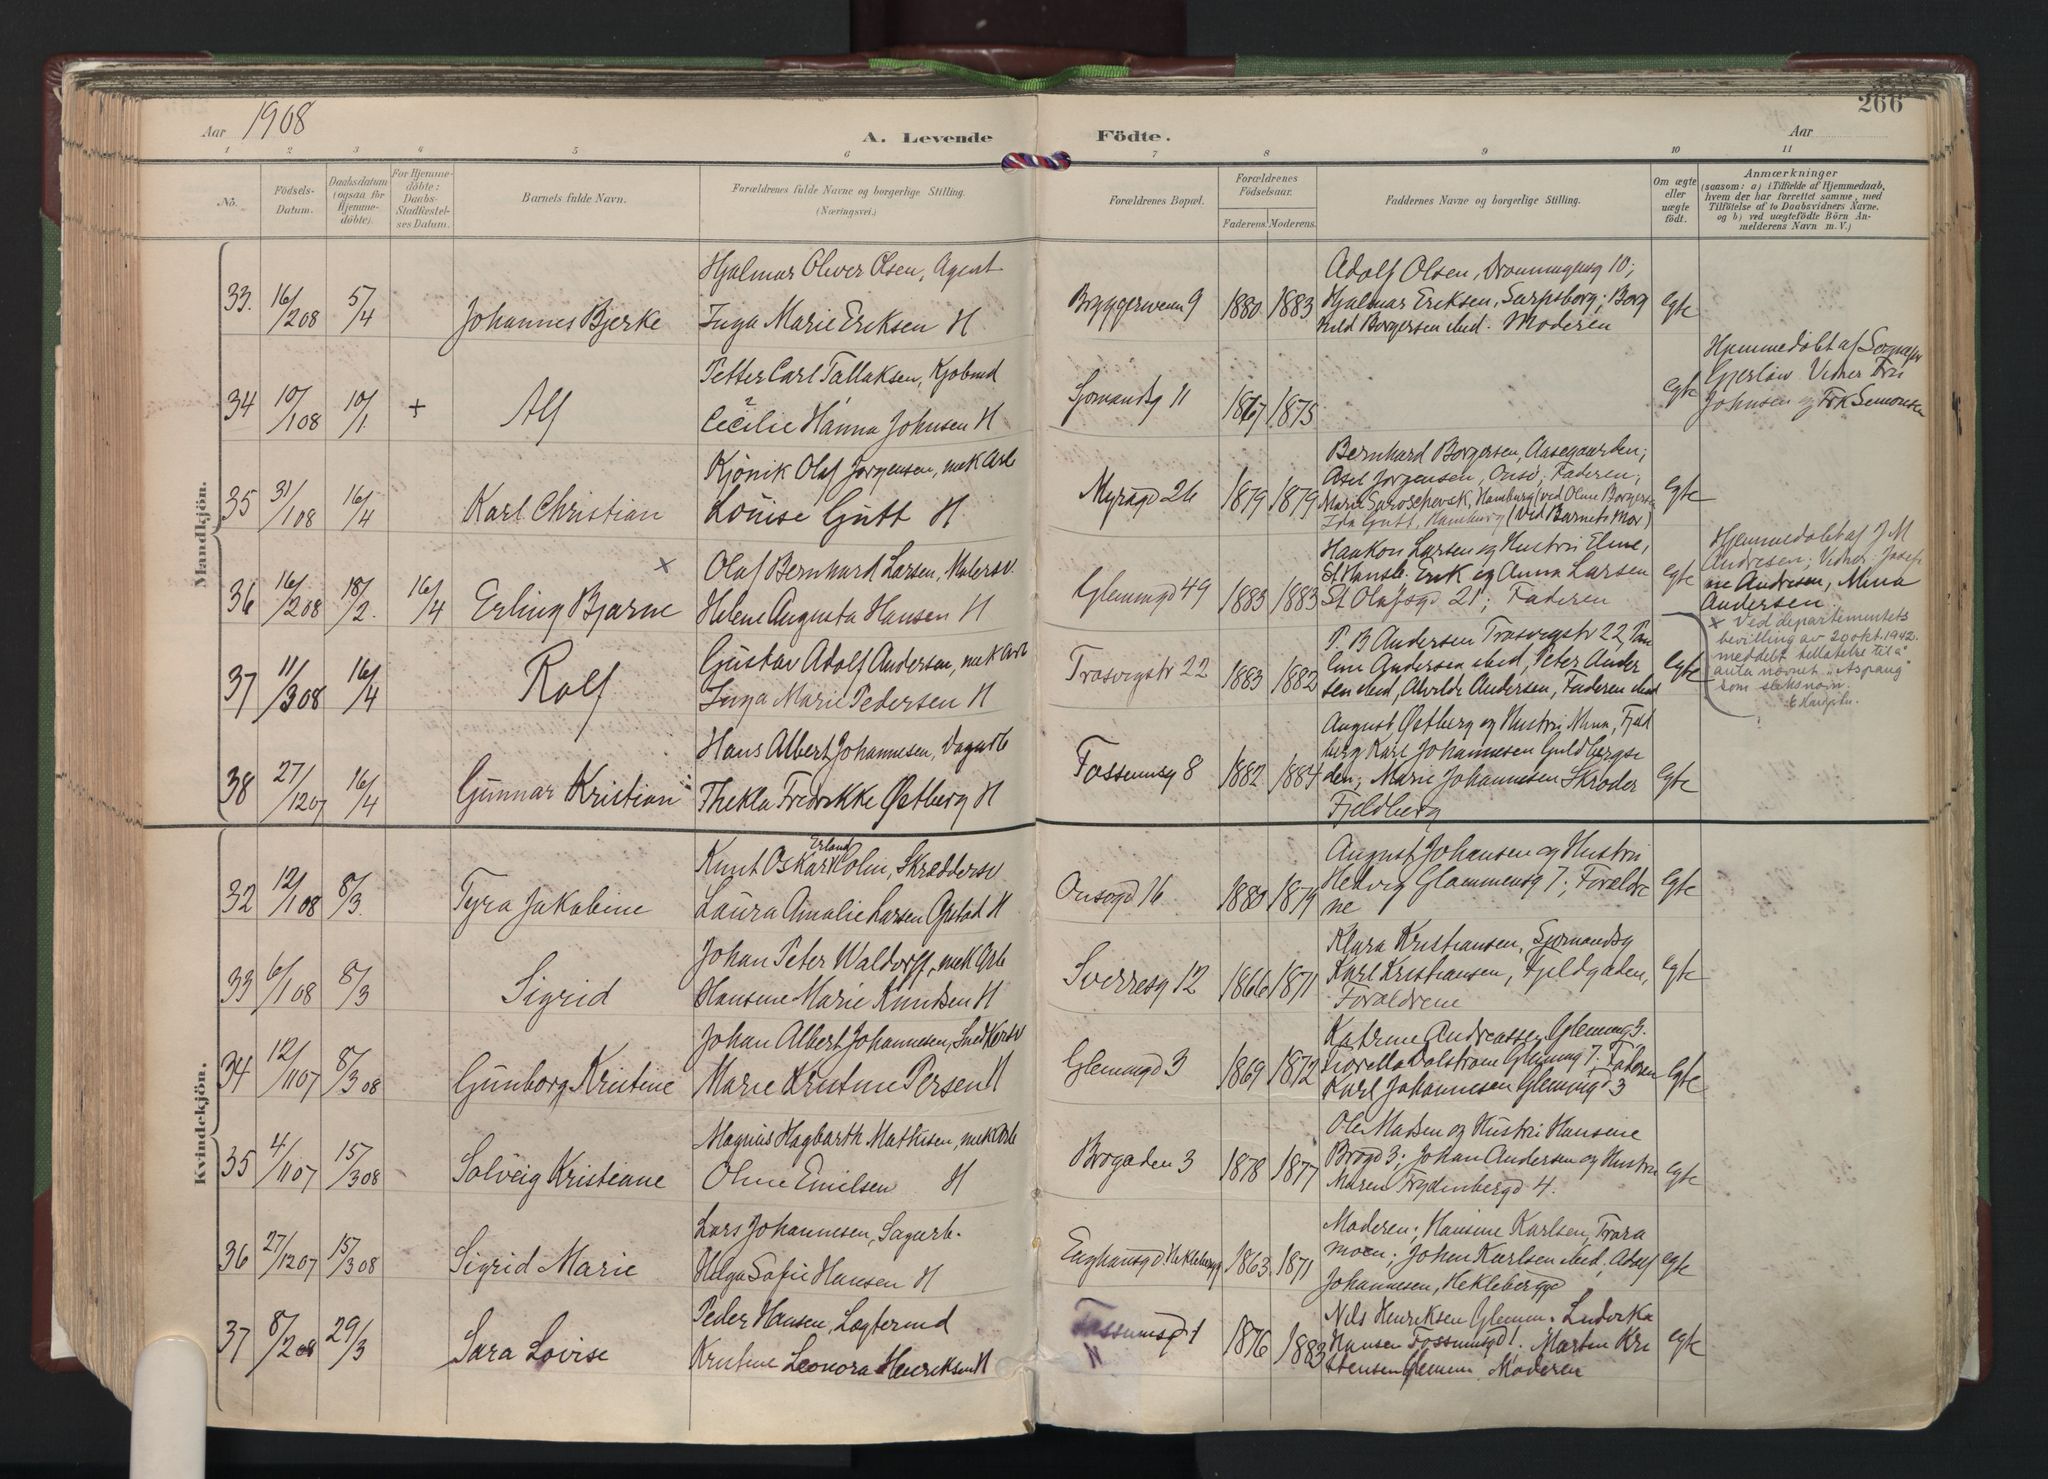 266
Aar 1908
A. Levende Födte.
Aar
1 2 3 4 5 6 7 8 9 10 11
No.
Födsels-Datum.
Daabsdatum (ogsaa för Hjemmedöbte).
For Hjemmedöbte: Daabs-Stadfestelses Datum.
Barnets fulde Navn.
Forældrenes fulde Navne og borgerlige Stilling.
(Næringsvei.)
Forældrenes Bopæl.
Forældrenes Födselsaar.
Faderens. Moderens.
Faddernes Navne og borgerlige Stilling.
Om ægte eller uægte födt.
Anmærkninger
(saasom: a) i Tilfælde af Hjemmedaab, hvem der har forrettet samme, med Tilföielse af to Daabsvidners Navne. og b) ved uægtefödte Börn Anmelderens Navn m. V.)
Mandkjön.
33. 16/2 08 5/4 Johannes Bjerke
Hjalmar Oliver Olsen, Agent
Inga Marie Eriksen H
Bryggerveien 9 1880 1883
Adolf Olsen, Dronningensg 10;
Hjalmar Eriksen, Sarpsborg; Borg
hild Borgersen ibid. Moderen
Egte
34 10/1 08 10/1. + Alf
Petter Carl Tallaksen, Kjöbmd
Cecilie Hanna Johnsen H
Sjomandsg 11 1867 1875
Egte
Hjemmedöbt af Sognepr
Gjerløw. Vidner Fru
Johnsen og Frk Simonsen
35 31/1 08 16/4 Karl Christian
Kjönik Olaf Jørgensen, mek Arb
Louise Gutt H
Myragd 26 1879 1879
Bernhard Borgersen, Aasegaarden;
Axel Jørgensen, Onsö; Faderen;
Hamburg (ved Oline Borgersen
Ida Gutt, Hamburg (ved Barnets Mor)
Egte
36 16/2 08 18/2. 16/4 Erling Bjarne x
Olaf Bernhard Larsen, Malersv.
Helene Augusta Hansen H
Glemmgd 49 1883 1883
Haakon Larsen og Hustru Eline,
St Hansb. Erik og Anna Larsen
St Olafsgd 21; Faderen
Egte
Hjemmedöbt af J M
Andresen; Vidner Josefi
ne Andresen, Mina
Andersen.
x Ved departementets
bevilling av 20 okt. 1942.
meddelt tillatelse til å
anta navnet "Aspang"
som slektsnavn.
37 11/3 08 16/4 Rolf
Gustav Adolf Andersen, mek Arb
Inga Marie Pedersen H
Trosvigstr 22 1883 1882
P B Andersen Trosvigstr 22, Pau
line Andersen ibid, Peter Ander
sen ibid, Alvilde Andersen, Faderen ibid
Egte
38 27/12 07 16/4 Gunnar Kristian
Hans Albert Johannesen, Dagarb
Thekla Fredrikke Østberg H
Fossumsg 8 1882 1884
August Østberg og Hustru Mina, Fjeld
berg Karl Johannesen Guldbergsi
den; Marie Johannesen Skröder
Fjeldberg
Egte
Kvindekjön.
32 12/1 08 8/3. Tyra Jakobine
Erland
Knut Oskar Holm, Skræddersv
Laura Amalie Larsen Opstad H
Onsogd 16 1880 1879
August Johansen og Hustru
Hedvig Glommensg 7; Forældre
ne
Egte
33 6/1 08 8/3 Sigrid
Johan Peter Waldorff, mek Arb
Hansine Marie Knudsen H
Sverresg 12 1866 1871
Klara Kristiansen, Sjomandsg
Karl Kristiansen, Fjeldgaden,
Forældrene
Egte
34 12/11 07 8/3 08 Gunborg Kristine
Johan Albert Johannesen, Snedkersv
Marie Kristine Persen H
Glemmgd 3 1869 1872
Katrine Andreassen Glemmg 3.
Fiorella Dalstrom Glemmg 7. Faderen
Karl Johannesen Glemmgd 3
Egte
35 4/11 07 15/3 08 Solveig Kristiane
Magnus Hagbarth Mathisen, mek Arb
Oline Emilsen H
Brogaden 3 1878 1877
Ole Madsen og Hustru Hansine
Brogd 3; Johan Andersen og Hustru
Maren Frydenbergd 4.
Egte
36 27/12 07 15/3 08 Sigrid Marie
Lars Johannesen, Sagarb.
Helga Sofie Hansen H
Enghausgd Hekleberg 1863. 1871
Moderen; Hansine Karlsen, Trara
moen; Johan Karlsen ibid, Adolf
Johannesen, Heklebergge
Egte
37 8/2 08 29/3 Sara Lovise
Peder Hansen, Logtermd
Kristine Leonora Henriksen H
Fossumsgd 1
N
1876 1883
Nils Henriksen Glemm. Ludvika
Hansen Fossumsgd 1. Martin Kri
stensen Glemm. Moderen
Egte